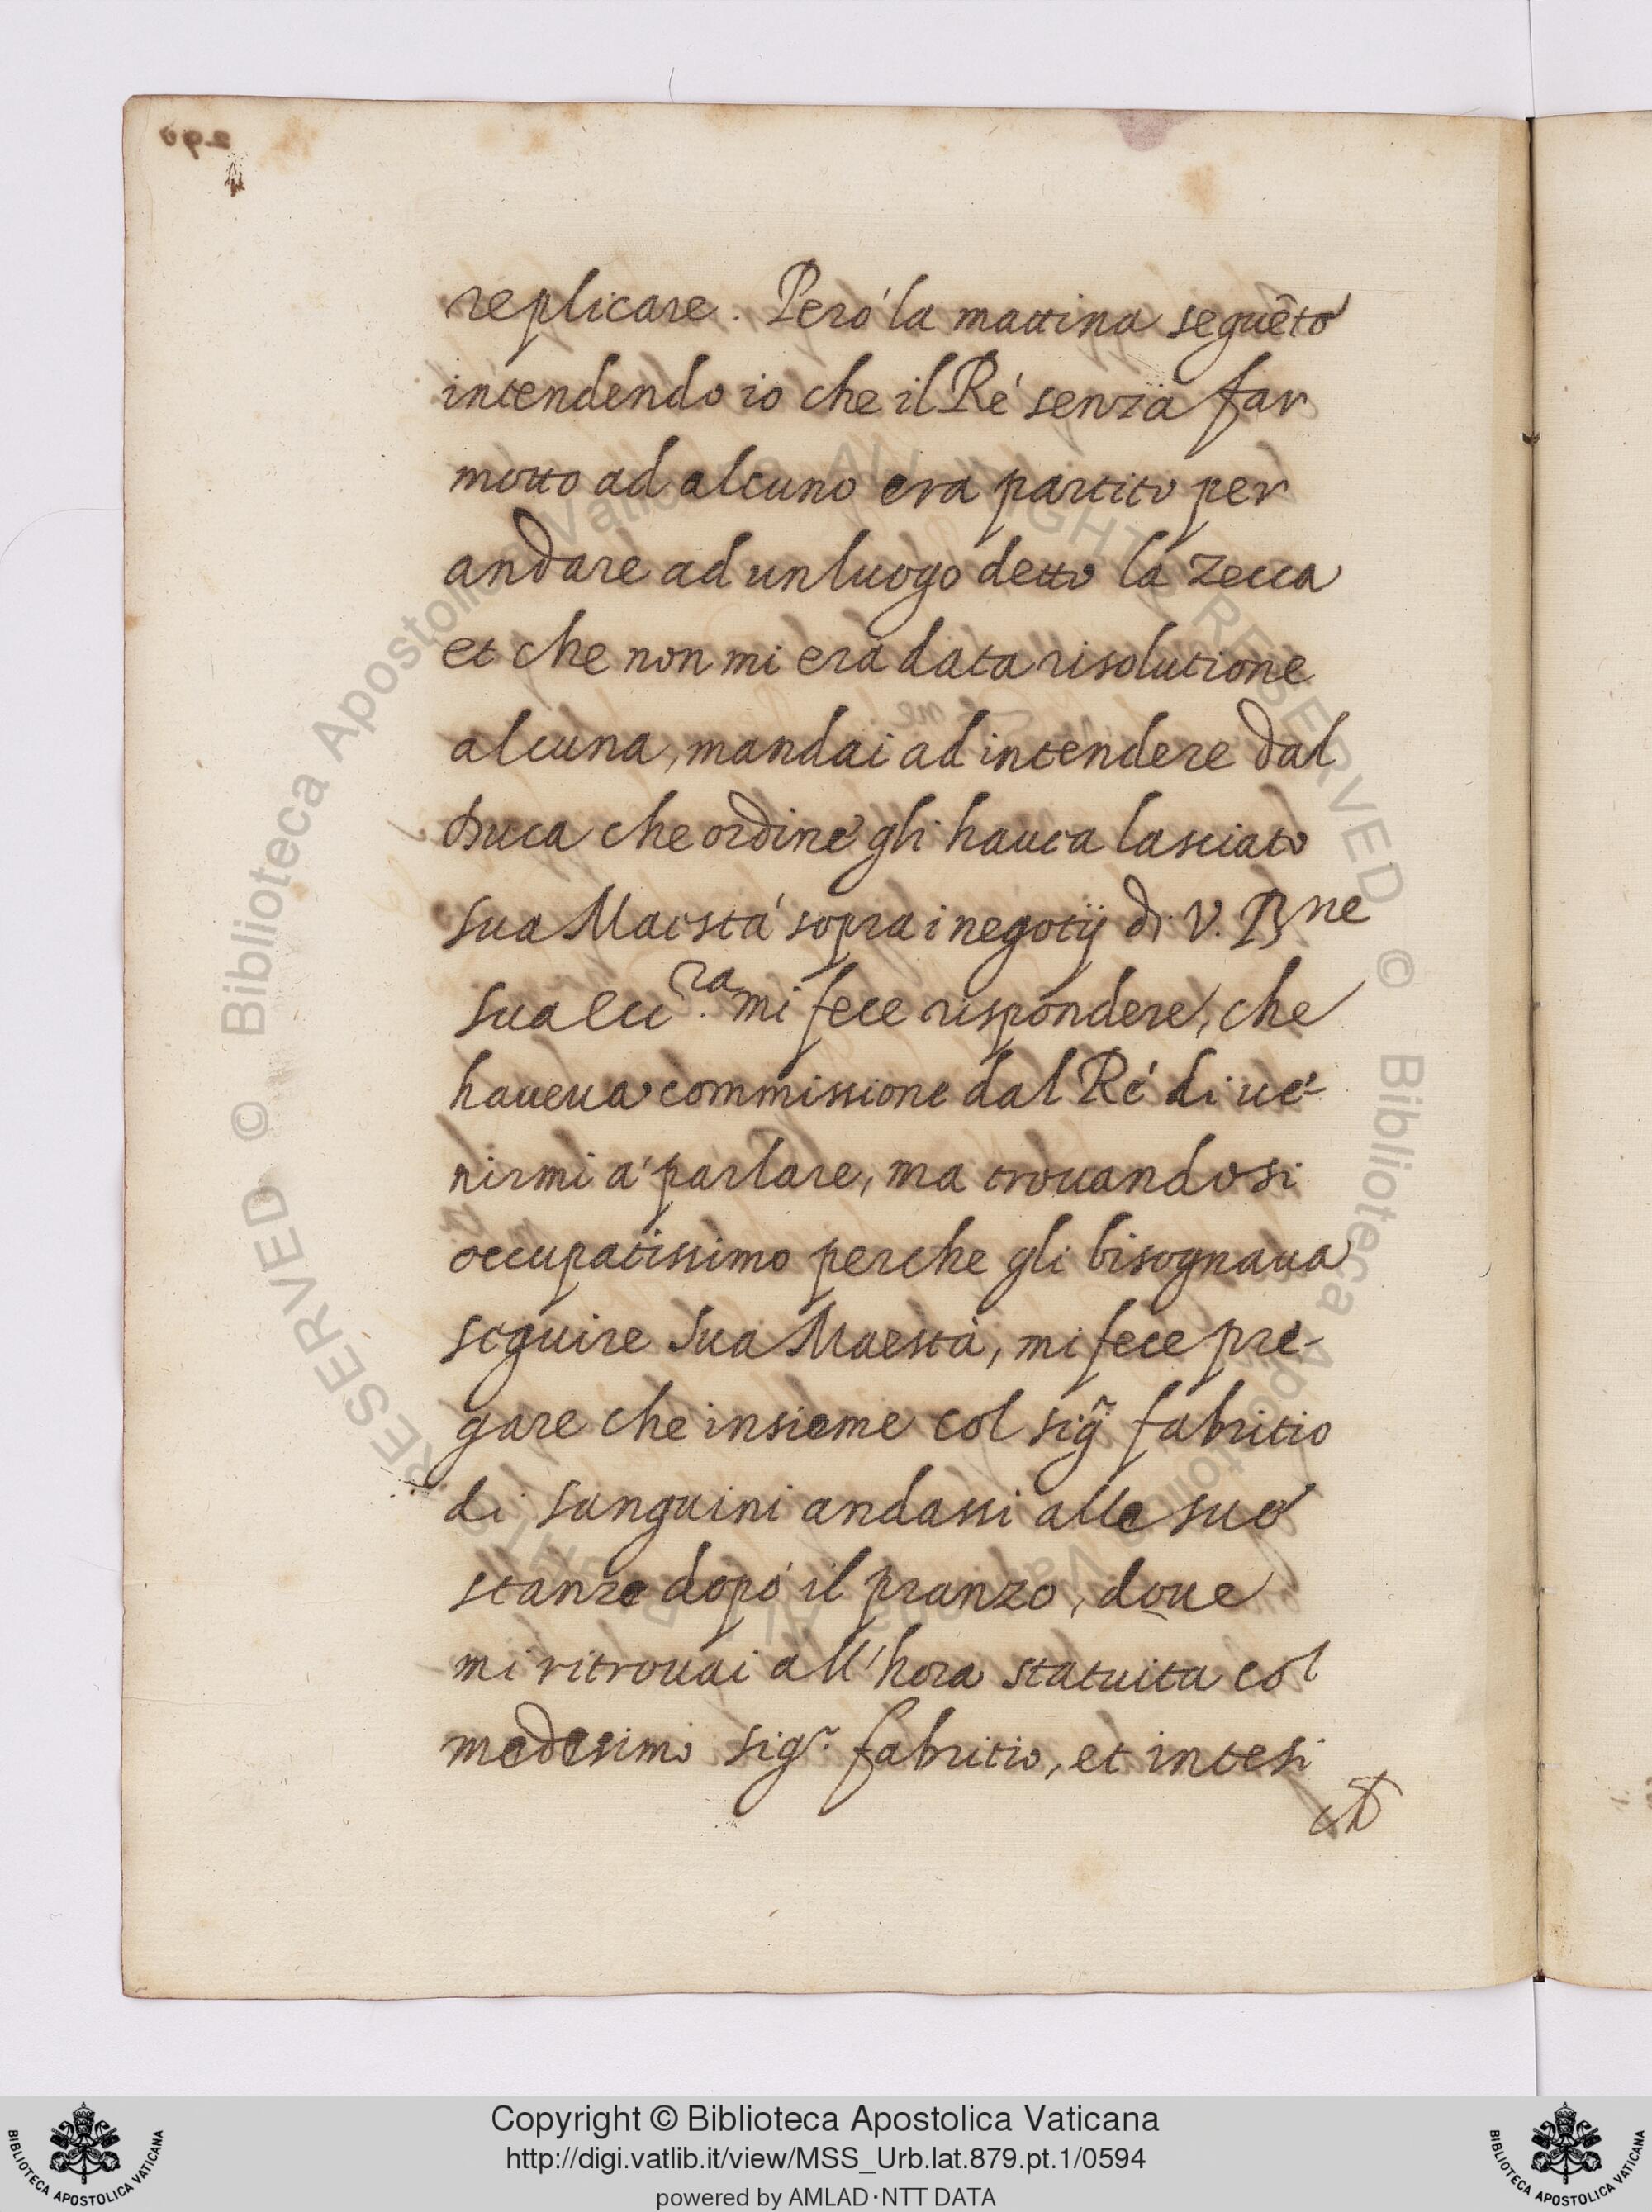 replicare. Però la mattina seguẽte
intendendo io che il Rè senza far
motto ad alcuno era partito per
andare ad un luogo detto la Zecca
et che non mi era data risolutione
alcuna, mandai ad intendere dal
Duca che ordine gli hauea lasciato
sua Maestà sopra i negotij di V. Bne
sua ecc.ra mi fece rispondere, che
haueua commissione dal Rè di ue-
nirmi à parlare, ma trouandosi
occupatissimo perche gli bisognaua
seguire sua Maestà, mi fece pre-
gare che insieme col sig.r fabritio
di sanguini andassi alle sue
stanze dopò il pranzo, doue
mi ritrouai all'hora statuita col
medesimo sig.r fabritio, et intesi
Copyright © Biblioteca Apostolica Vaticana
http://digi.vatlib.it/view/MSS_Urb.lat.879.pt.1/0594
powered by AMLAD·NTT DATA